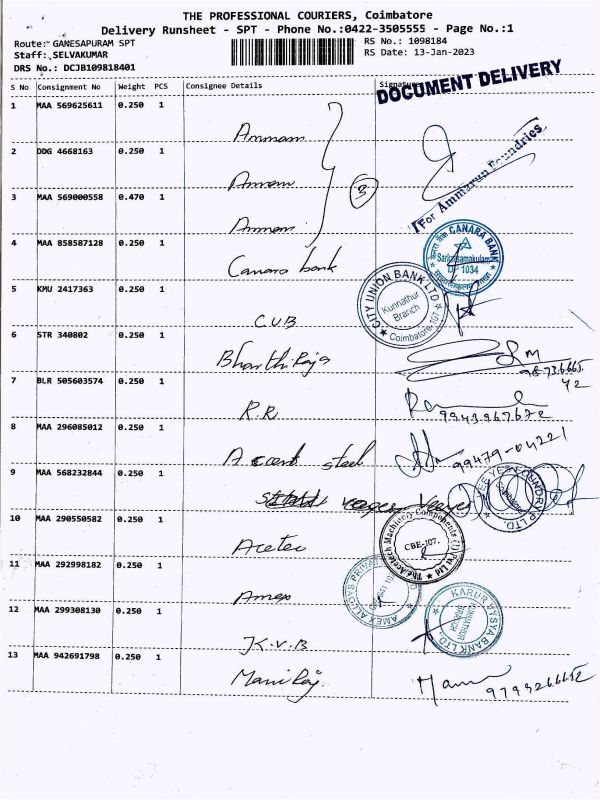 THE PROFESSIONAL COURIERS, Coimbatore
Delivery Runsheet - SPT - Phone No.:0422-3505555 - Page No.:1
Route: GANESAPURAM SPT
RS No.: 1098184
Staff: SELVAKUMAR
RS Date: 13-Jan-2023
DRS No.: DCJB109818401
S No Consignment No Weight PCS Consignee Details Signature
DOCUMENT DELIVERY
1 MAA 569625611 0.250 1
Ammam
2 DDG 4668163 0.250 1
Ammam
3 MAA 569000558 0.470 1
3
For Ammarun Foundries
Ammam
4 MAA 858587128 0.250 1
Canara bank
CANARA BANK
DP 1034
5 KMU 2417363 0.250 1
CITY UNION BANK LTD
Kunnathur Branch
Coimbatore-107
C.U.B
6 STR 340802 0.250 1
Bharthi Raja
7 BLR 505603574 0.250 1
R.R.
8 MAA 296085012 0.250 1
Accent steel
99479-04221
9 MAA 568232844 0.250 1
VEE YES FOUNDRY P LTD.
Coimbatore
10 MAA 290550582 0.250 1
Acetec
The Acetech Machinery Components (I) Pvt Ltd
CBE-107.
11 MAA 292998182 0.250 1
Amex
AMEX ALLOYS PRIVATE
12 MAA 299308130 0.250 1
K.V.B
KARUR VYSYA BANK LTD.
KUNNATHUR BRANCH
13 MAA 942691798 0.250 1
Mani Raj